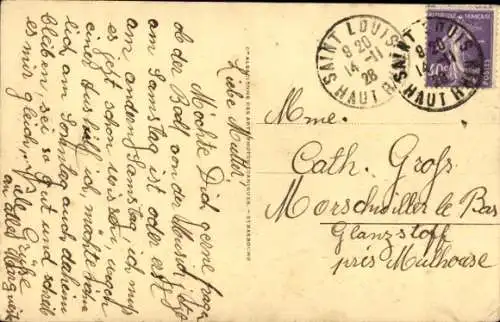 Liebe Mutter
Möchte Dich gerne frag.
ob der Ball von der Musik jetz
am Samstag ist oder erst
am andern Samstag, ich muss
es jetzt schon wissen, wegen
einer Aushilf, ich möchte
lich am Sonntag auch daheim
bleiben, sei so gut und schreib
es mir gleich, Viele Grüsse
an alle Marguerit
SAINT LOUIS
9 20
14 -11
28
HAUT RHIN
SAINT LOUIS
9 20
14 -11
28
HAUT RHIN
FRANÇAISE
POSTES
Mme.
Cath. Grofs.
Morschwiller le Bas
Glanzstoff
près Mulhouse